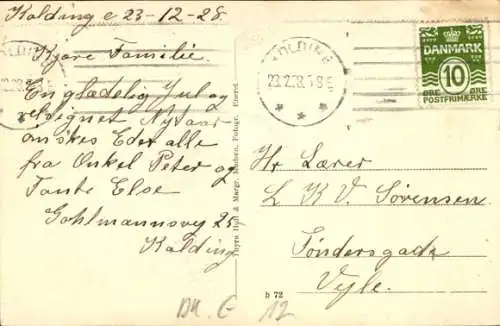 Kolding e 23-12-28.
Kjære Familie.
En glædelig Jul og
velsignet Nytaar
ønskes Eder alle
fra Onkel Peter og
Tante Else
Gohlmannsvej 25
Kolding
Hr Lærer
L K V. Sørensen
Tøndersgade
Vejle.
KOLDING
DANMARK
10
ØRE ØRE
POSTFRIMÆRKE
Eneret.
b 72
DK. G
12